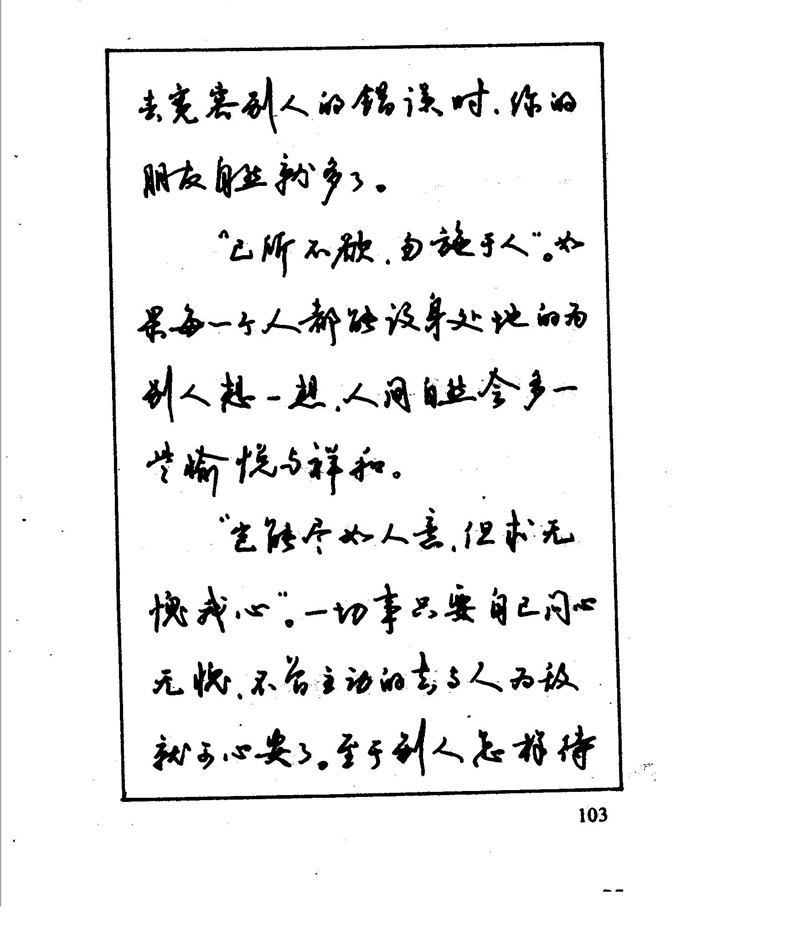 去宽容别人的错误时，你的
朋友自然就多了。
“己所不欲，勿施于人”。如
果每一个人都能设身处地的为
别人想一想，人间自然会多一
些愉悦与祥和。
“岂能尽如人意，但求无
愧我心”。一切事只要自己问心
无愧，不曾主动的去与人为敌
就可心安了。至于别人怎样待
103